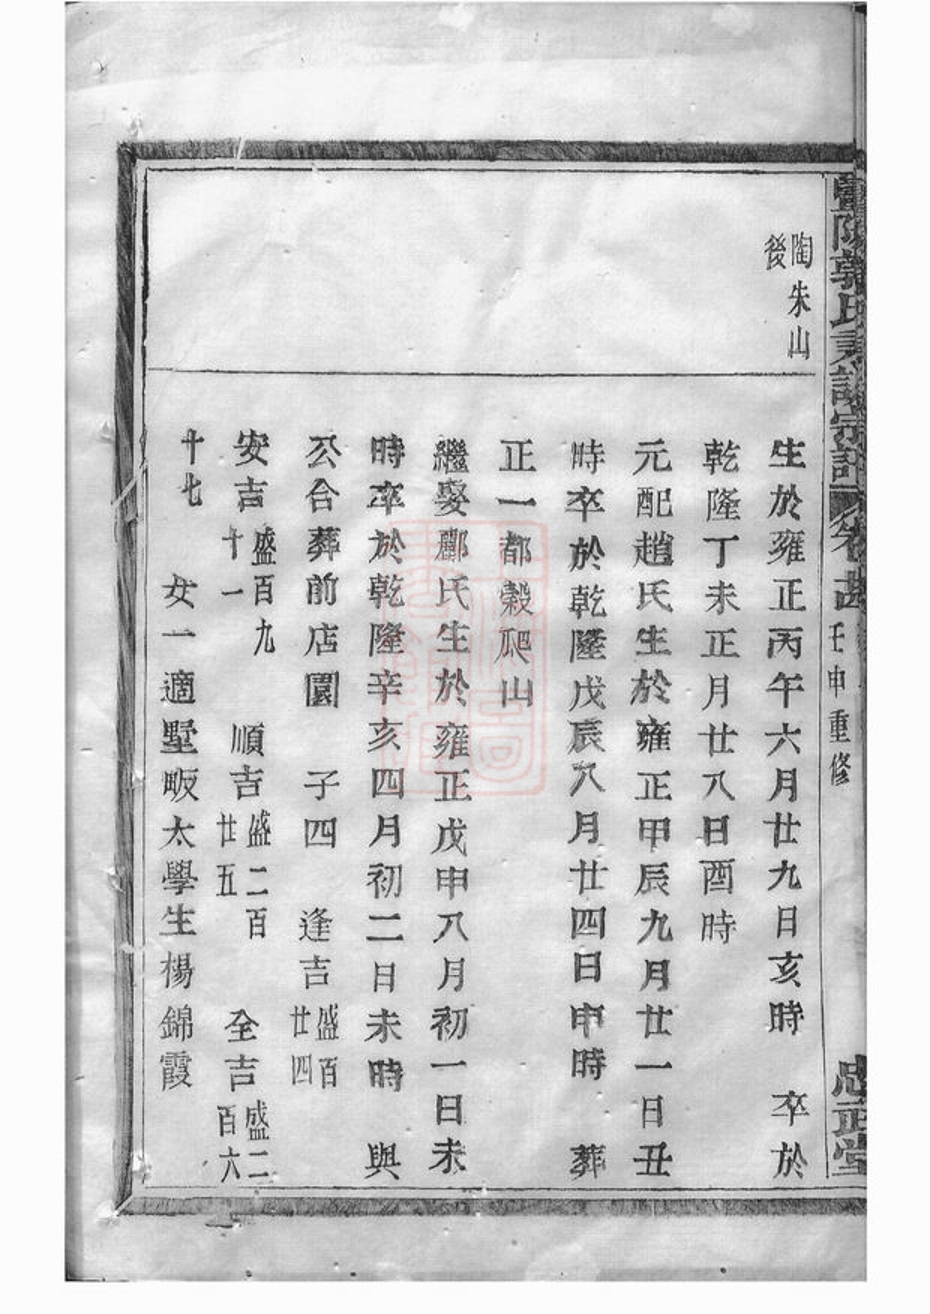 暨陽郭氏
宗譜
卷
壬申重修
忠正堂
陶朱山
後
生於雍正丙午六月廿九日亥時 卒於
乾隆丁未正月廿八日酉時
元配趙氏生於雍正甲辰九月廿一日丑
時卒於乾隆戊辰八月廿四日申時 葬
正一都穀爬山
繼娶酈氏生於雍正戊申八月初一日未
時卒於乾隆辛亥四月初二日未時 與
公合葬前店園 子四 逢吉盛百廿四
安吉盛百九十一 順吉盛二百廿五 全吉盛二百六
十七 女一適墅畈太學生楊錦霞